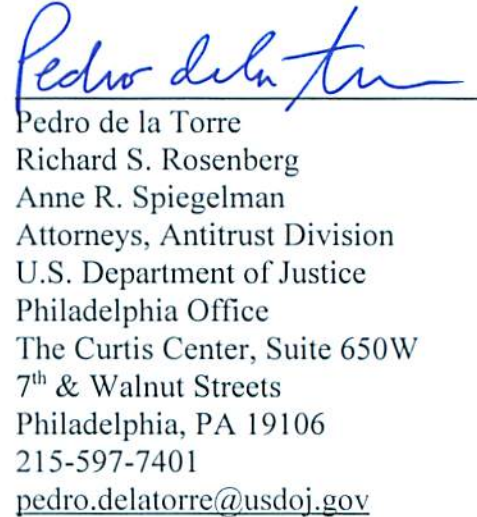 Pedro de la Torre
Pedro de la Torre
Richard S. Rosenberg
Anne R. Spiegelman
Attorneys, Antitrust Division
U.S. Department of Justice
Philadelphia Office
The Curtis Center, Suite 650W
7th & Walnut Streets
Philadelphia, PA 19106
215-597-7401
pedro.delatorre@usdoj.gov